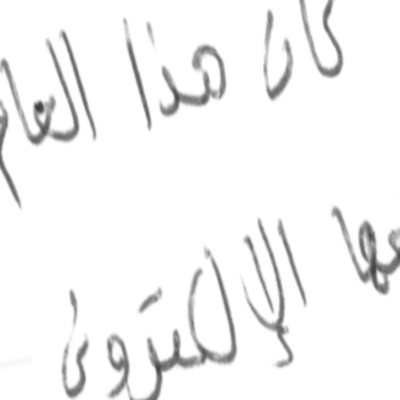 كان هذا العام
الإلكترونى